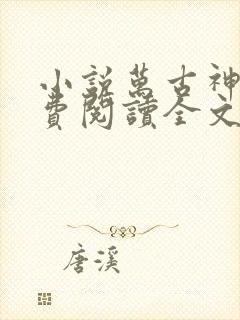 小說萬古神
費閱讀全文
唐溪